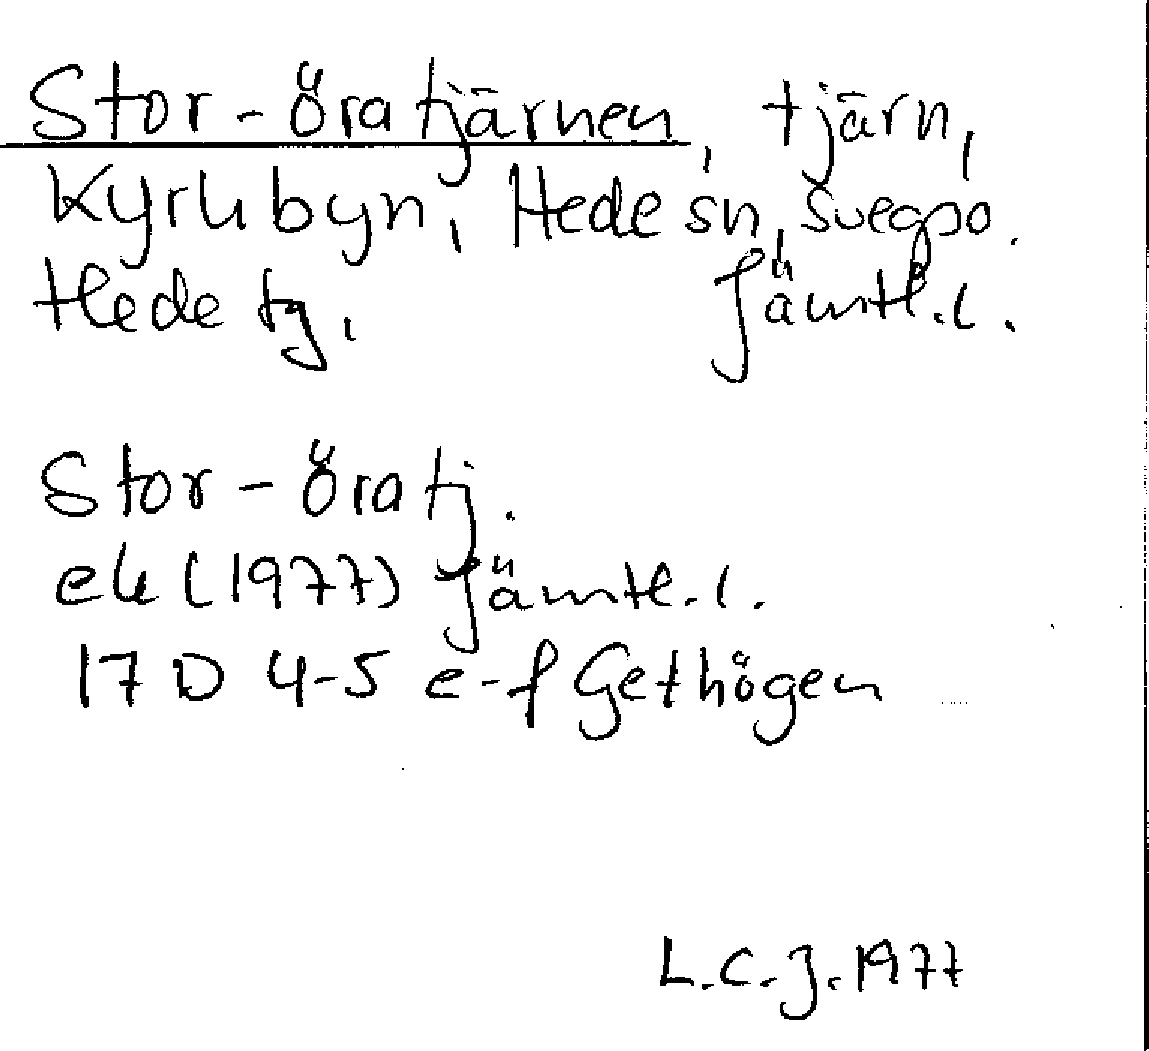 Stor-Öratjärnen, tjärn,
Kyrkbyn, Hede sn, Svegs po.
Hede tg, Jämtl.l.
Stor-Öratj.
ek (1977) Jämtl.l.
17 D 4-5 e-f Gethögen
L.C.J. 1977